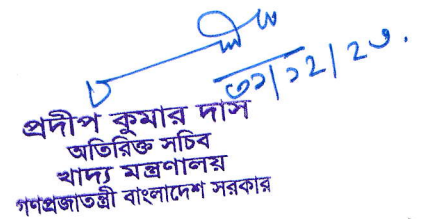 ৩১/১২/২৩.
প্রদীপ কুমার দাস
অতিরিক্ত সচিব
খাদ্য মন্ত্রণালয়
গণপ্রজাতন্ত্রী বাংলাদেশ সরকার